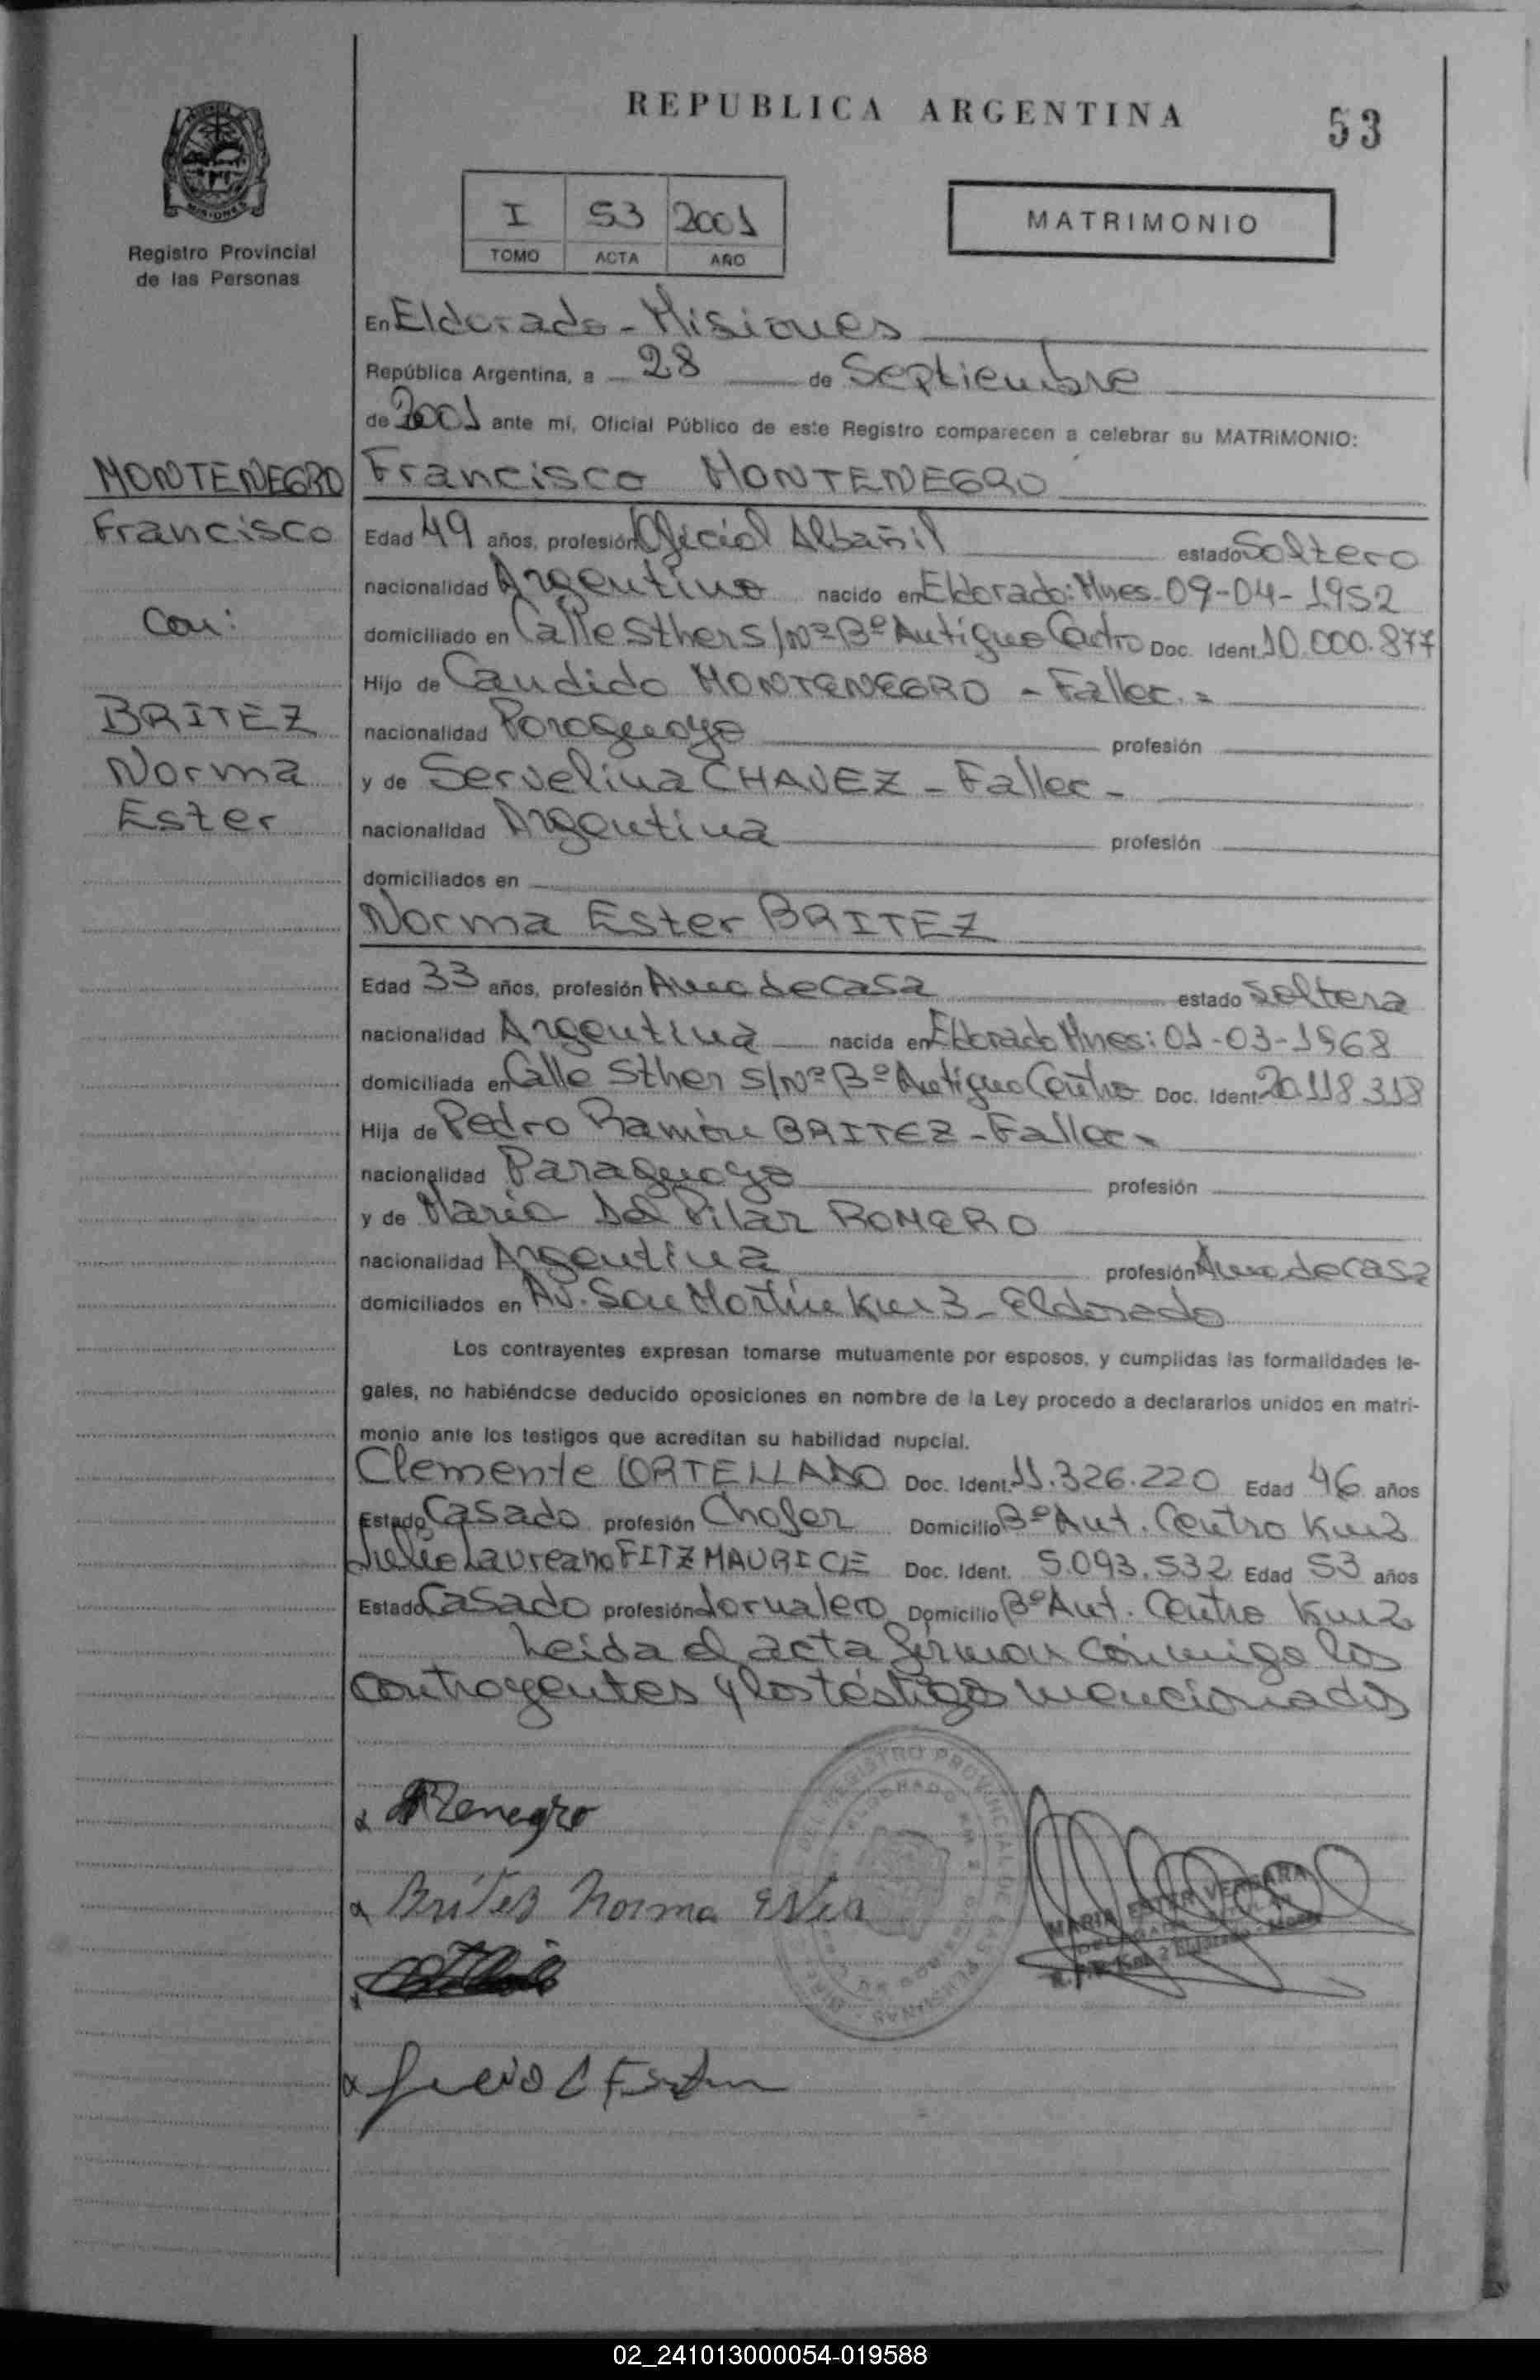 REPUBLICA ARGENTINA
53
MISIONES
Registro Provincial
de las Personas
I 53 2001
TOMO ACTA AÑO
MATRIMONIO
En Eldorado - Misiones
República Argentina, a 28 de Septiembre
de 2001 ante mí, Oficial Público de este Registro comparecen a celebrar su MATRIMONIO:
MONTENEGRO
Francisco
Con:
BRITEZ
Norma
Ester
Francisco MONTENEGRO
Edad 49 años, profesión Oficial Albañil estado Soltero
nacionalidad Argentino nacido en Eldorado: Mnes - 09-04-1952
domiciliado en Calle Sther S/Nº Bº Antiguo Centro Doc. Ident. 10.000.877
Hijo de Candido MONTENEGRO - Fallec. -
nacionalidad Paraguayo profesión
y de Servelina CHAVEZ - Fallec -
nacionalidad Argentina profesión
domiciliados en
Norma Ester BRITEZ
Edad 33 años, profesión Ama de Casa estado Soltera
nacionalidad Argentina nacida en Eldorado Mnes: 01-03-1968
domiciliada en Calle Sther S/Nº Bº Antiguo Centro Doc. Ident. 20.118.318
Hija de Pedro Ramón BRITEZ - Fallec -
nacionalidad Paraguayo profesión
y de María Del Pilar ROMERO
nacionalidad Argentina profesión Ama de Casa
domiciliados en Av. San Martín Km 3 - Eldorado
Los contrayentes expresan tomarse mutuamente por esposos, y cumplidas las formalidades le-
gales, no habiéndose deducido oposiciones en nombre de la Ley procedo a declararlos unidos en matri-
monio ante los testigos que acreditan su habilidad nupcial.
Clemente CORTELLADO Doc. Ident. 11.326.220 Edad 46 años
Estado Casado profesión Chofer Domicilio Bº Ant. Centro Km 2
Julio Laureano FITZMAURICE Doc. Ident. 5.093.532 Edad 53 años
Estado Casado profesión Jornalero Domicilio Bº Ant. Centro Km 2
Leida el acta firman conmigo los
contrayentes y los testigos mencionados
Britez Norma Ester
MARIA ESTER VERGARA
02_241013000054-019588